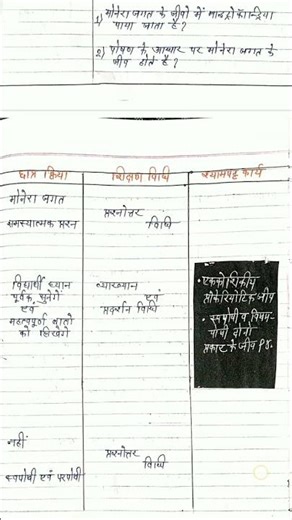 1) मोनेरा जगत के जीवो में माइटोकान्ड्रिया
पाया जाता है?
2) पोषण के आधार पर मोनेरा जगत के
जीव होते है?
छात्र क्रिया
शिक्षण विधि
श्यामपट्ट कार्य
मोनेरा जगत
समस्यात्मक प्रश्न
प्रश्नोत्तर
विधि
विद्यार्थी ध्यान
पूर्वक सुनेंगे
एवं
महत्वपूर्ण बातो
को लिखेंगे
व्याख्यान
एवं
प्रदर्शन विधि
• एककोशिकीय
प्रोकैरियोटिक जीव
• स्वपोषी व विषम-
पोषी दोनो
प्रकार के जीव
नहीं
स्वपोषी एवं परपोषी
प्रश्नोत्तर
विधि